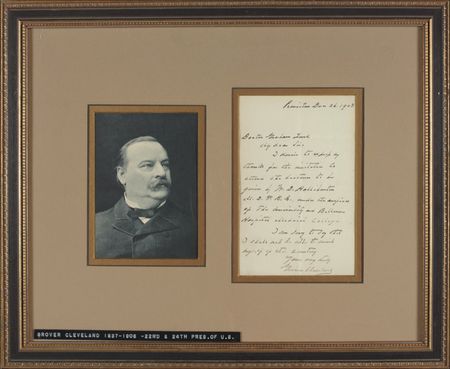 Princeton Dec 26, 190
Doctor Graham Lusk
My dear Sir:
I desire to express my
thanks for the invitation to
attend the lectures to be
given by W. D. Halliburton
M. D. F. R. S. under the auspices
of the University and Bellevue
Hospital Medical College
I am sorry to say that
I shall not be able to avail
myself of the invitation
Yours very truly
Grover Cleveland
GROVER CLEVELAND 1837-1908 -22RD & 24TH PRES.OF U.S.